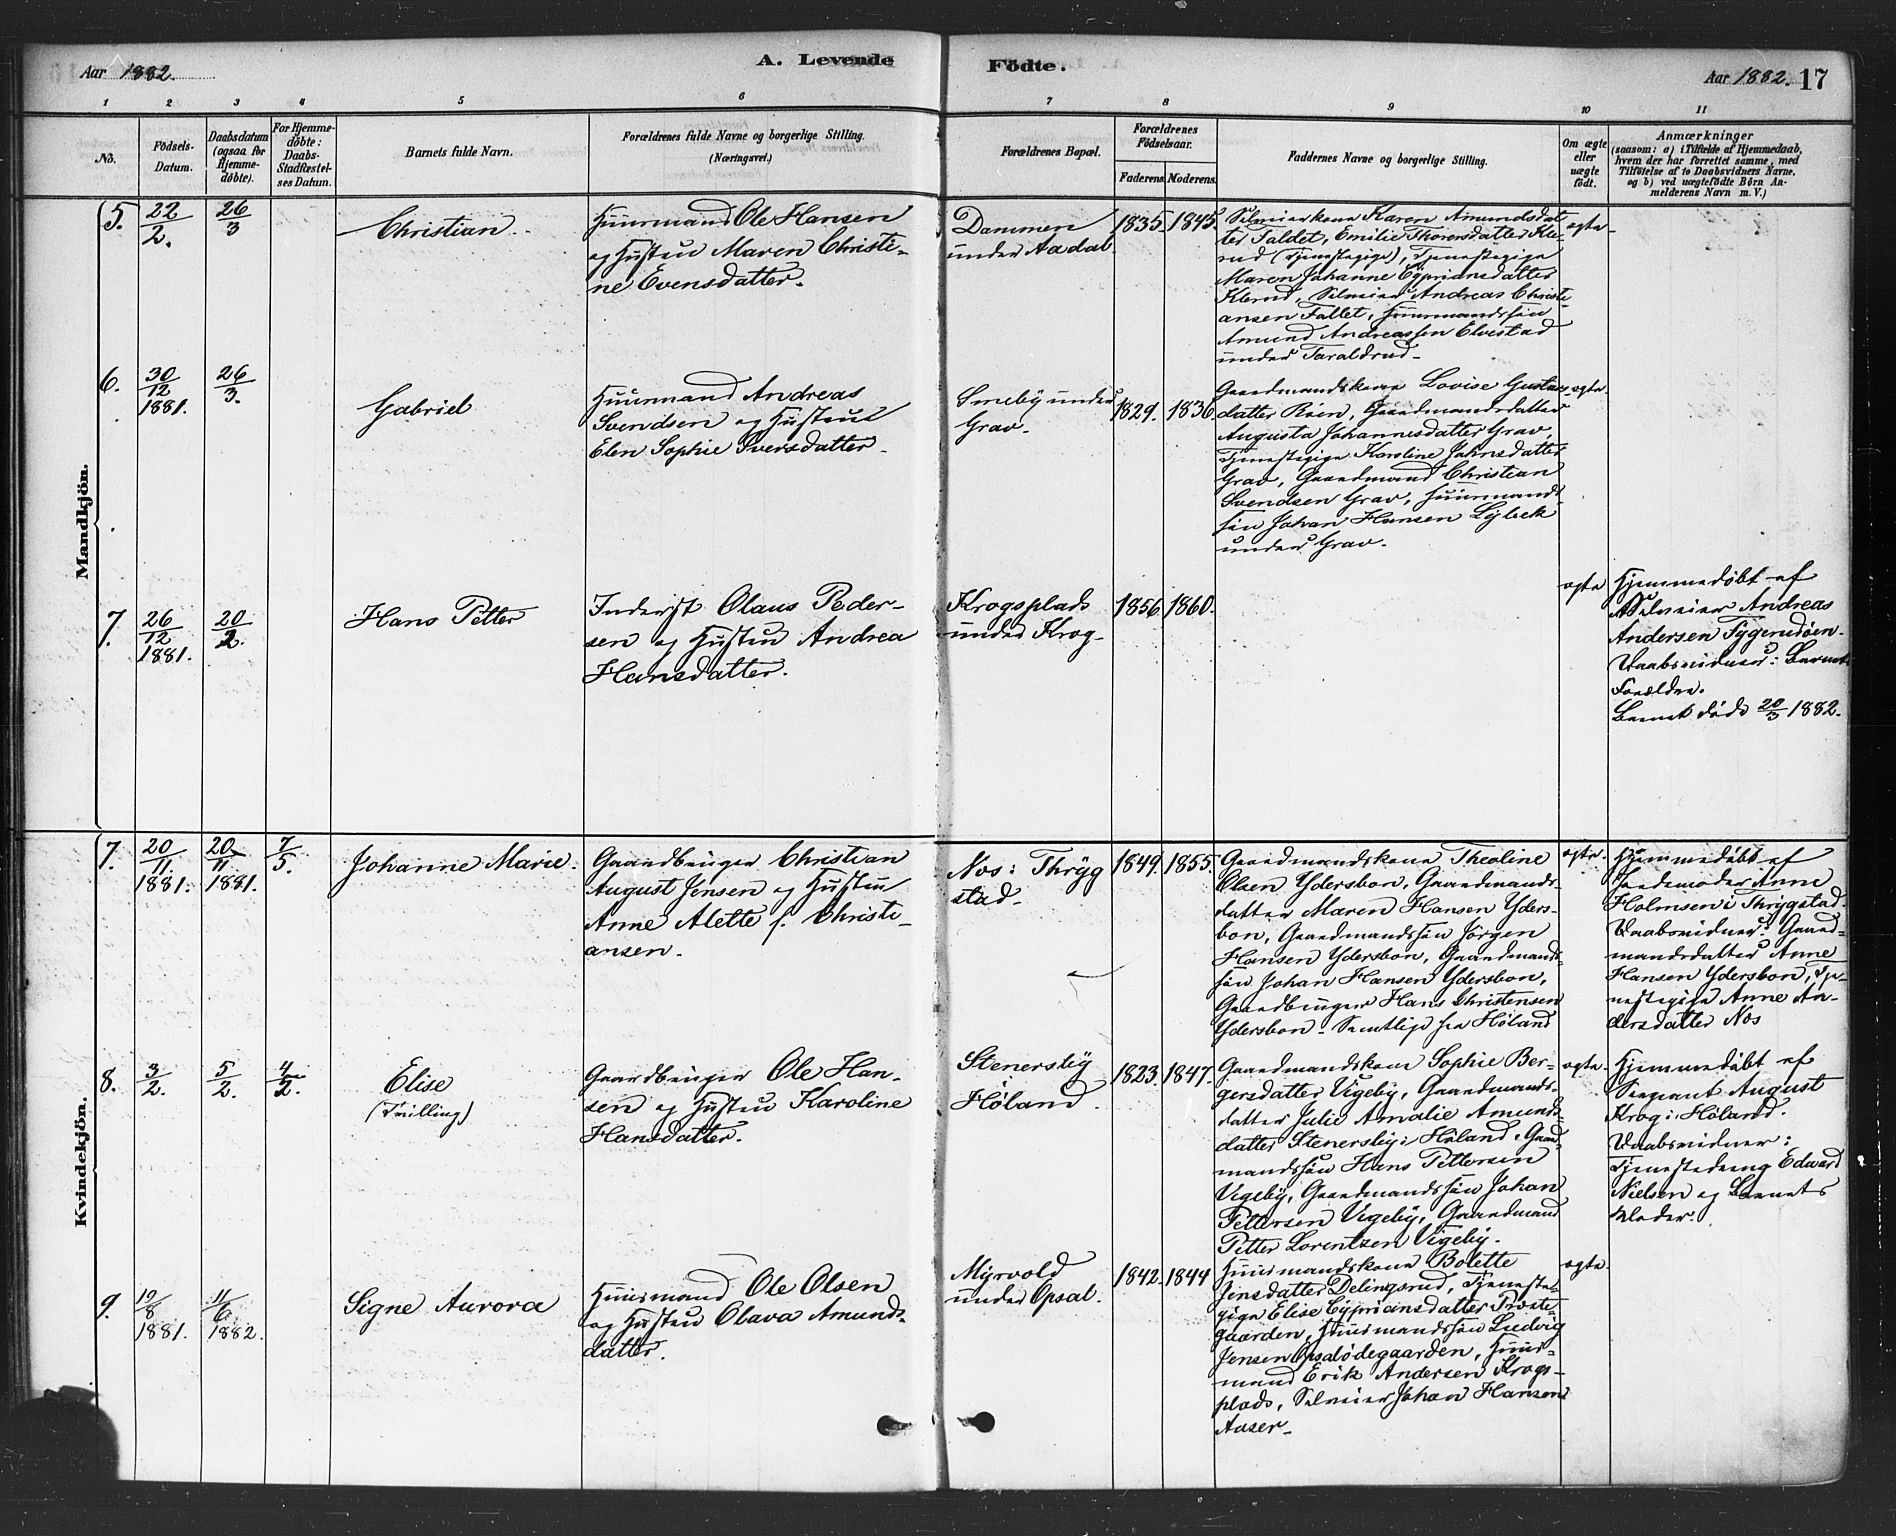 Aar 1882.
A. Levende
Födte.
Aar 1882. 17
1 2 3 4 5 6 7 8 9 10 11
No.
Födsels-
Datum.
Daabsdatum
(ogsaa for
Hjemme-
döbte).
For Hjemme-
döbte:
Daabs-
Stadfæstel-
ses Datum.
Barnets fulde Navn.
Forældrenes fulde Navne og borgerlige Stilling.
(Næringsvei.)
Forældrenes Bopæl.
Forældrenes
Födselsaar.
Faderens Moderens
Faddernes Navne og borgerlige Stilling.
Om ægte
eller
uægte
født.
Anmærkninger
(saasom: a) i Tilfælde af Hjemmedaab,
hvem der har forrettet samme, med
Tilföielse af to Daabsvidners Navne,
og b) ved uægtefödte Börn An-
melderens Navn m. V.)
Mandkjön.
5.
22/2.
26/3
Christian
Huusmand Ole Hansen
og Hustru Maren Christi-
ne Evensdatter.
Dammen
under Aadal.
1835. 1845.
Selveierkone Karen Amundsdat
ter Taldet, Emilie Thorersdatter Kle-
rud (Tjenestepige), Tjenestepige
Maren Johanne Cypriansdatter
Klerud, Selveier Andreas Christi-
ansen Fallet, Huusmandssön
Amund Andreassen Elvestad
under Taraldrud.
ægte
6.
30/12
1881.
26/3.
Gabriel
Huusmand Andreas
Svendsen og Hustru
Elen Sophie Iversdatter.
Smeby under
Grav.
1829. 1836
Gaardmandskone Lovise Gustavs-
datter Roen, Gaardmandsdatter
Augusta Johannesdatter Grav,
Tjenestepige Karoline Johnsdatter
Grav, Gaardmand Christian
Svendsen Grav, Huusmands-
sön Johan Hansen Lybek
under Grav.
ægte
7.
26/12
1881.
20/2.
Hans Petter
Inderst Olaus Peder-
sen og Hustru Andrea
Hansdatter.
Krogsplads
under Krog.
1856. 1860.
ægte
Hjemmedöbt af
Selveier Andreas
Andersen Tygerudöen.
Daabsvidner: Barnets
Forældre.
Barnet döde 20/3 1882.
Kvindekjön.
7.
20/11
1881.
20/11
1881.
7/5.
Johanne Marie.
Gaardbruger Christian
August Jensen og Hustru
Anne Alette f. Christi-
ansen.
Nos i Thrÿg
stad.
1849. 1855.
Gaardmandskone Theoline
Olsen Ydersbon, Gaardmands-
datter Maren Hansen Yders-
bon, Gaardmandssön Jörgen
Hansen Ydersbon, Gaardmands-
sön Johan Hansen Ydersbon,
Gaardbruger Hans Christensen
Ydersbon. Samtlige fra Höland
ægte.
Hjemmedöbt af
Jordemoder Anne
Holmsen i Thrygstad.
Daabsvidner: Gaard-
mandsdatter Anne
Hansen Ydersbon, Tje-
nestepige Anne An-
dersdatter Nos
8.
3/2.
5/2.
4/2.
Elise
(Trilling)
Gaardbruger Ole Han-
sen og Hustru Karoline
Hansdatter.
Stenersby
Höland.
1823. 1847.
Gaardmandskone Sophie Ber-
gersdatter Vigeby, Gaardmands-
datter Julie Amalie Amunds-
datter Stenersby i Höland. Gaard-
mandssön Hans Pettersen
Vigeby, Gaardmandssön Johan
Pettersen Vigeby, Gaardmand
Petter Lorentzen Vigeby.
ægte.
Hjemmedöbt af
Sergeant August
Krog i Höland.
Daabsvidner:
Tjenestedreng Edvard
Nielsen og Barnets
Moder.
9.
19/8
1881.
11/6
1882.
Signe Aurora
Huusmand Ole Olsen
og Hustru Olava Amunds-
datter.
Myrvold
under Opsal.
1842. 1844
Huusmandskone Bolette
Jensdatter Delingsrud, Tjeneste-
pige Elise Cypriansdatter Proste-
gaarden, Huusmandssön Ludvig
Jensen Opsalödegaarden, Huus-
mand Erik Andersen Krogs-
plads, Selveier Johan Hansen
Aaser.
ægte.